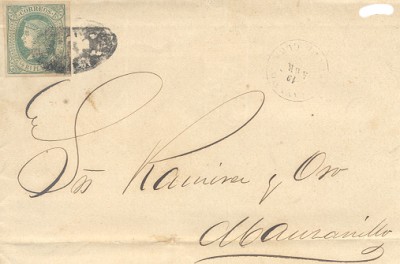 CORREOS
Srs Ramirez y Oro
Manzanillo